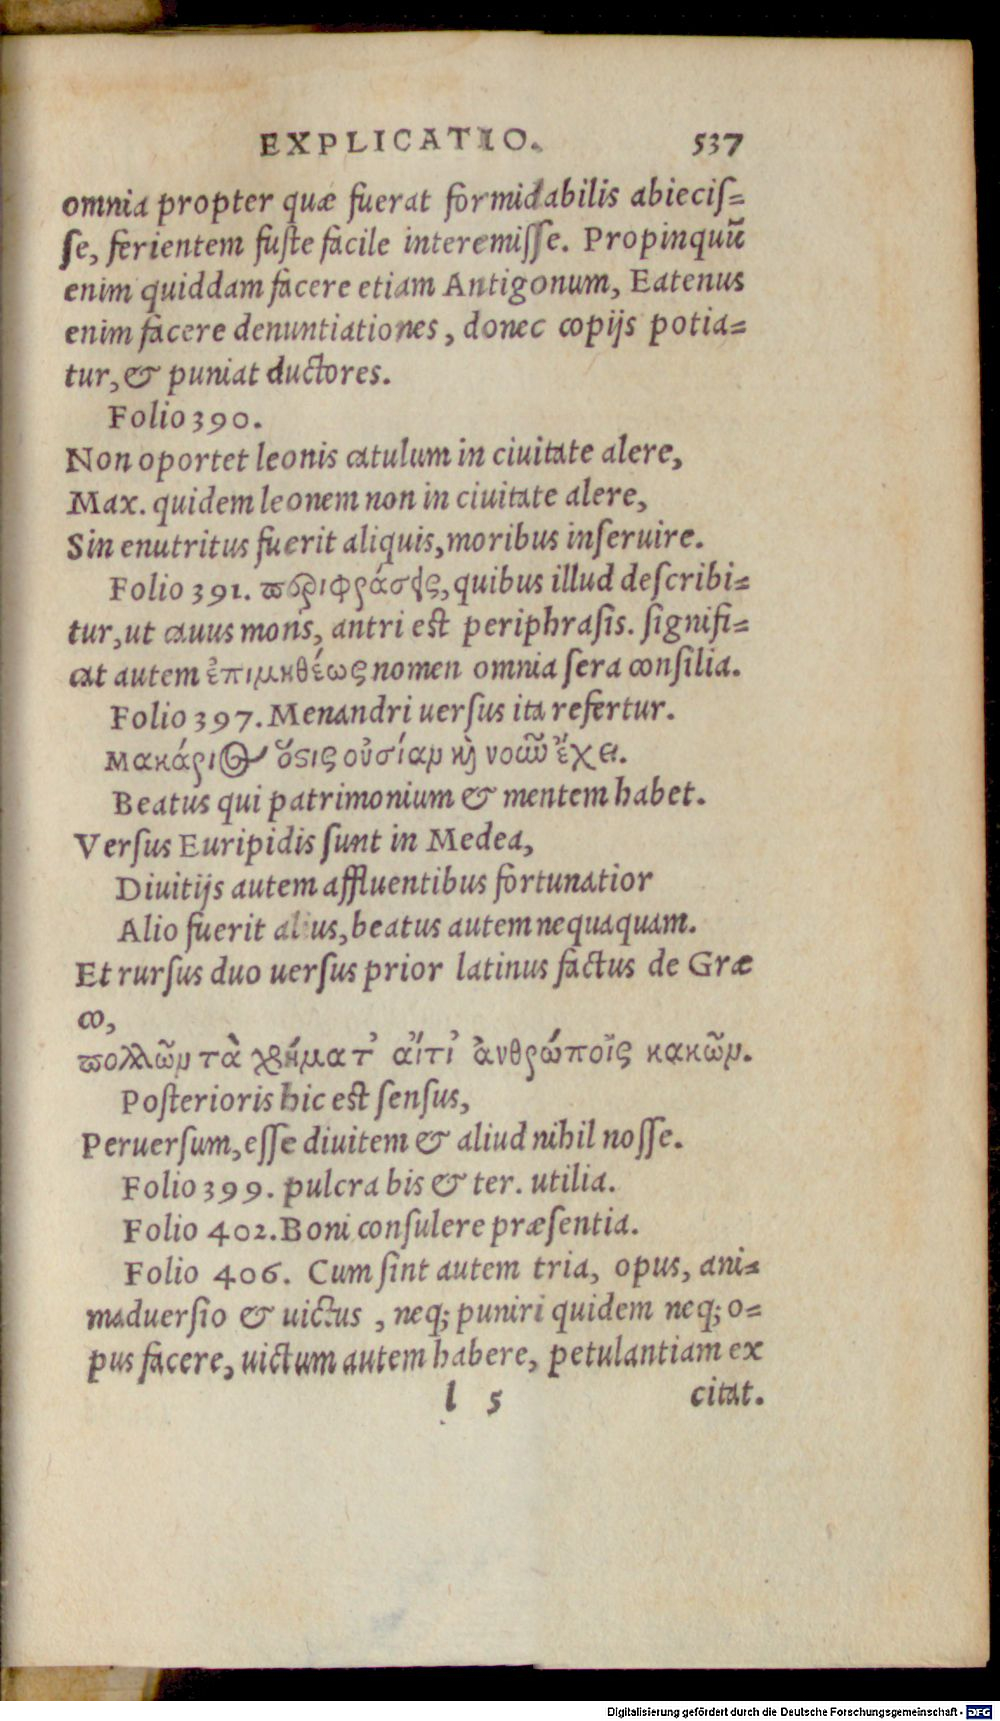 EXPLICATIO. 537
omnia propter quæ fuerat formidabilis abieciſ=
ſe, ferientem fuſte facile interemiſſe. Propinquũ
enim quiddam facere etiam Antigonum, Eatenus
enim facere denuntiationes, donec copijs potia=
tur, & puniat ductores.
Folio 390.
Non oportet leonis catulum in ciuitate alere,
Max. quidem leonem non in ciuitate alere,
Sin enutritus fuerit aliquis, moribus inſeruire.
Folio 391. περιφράσεις, quibus illud deſcribi=
tur, ut cauus mons, antri est periphraſis. ſignifi=
cat autem ἐπιμηθέως nomen omnia ſera conſilia.
Folio 397. Menandri uerſus ita refertur.
μακάριος ὅστις οὐσίαν καὶ νοῦν ἔχει.
Beatus qui patrimonium & mentem habet.
Verſus Euripidis ſunt in Medea,
Diuitijs autem affluentibus fortunatior
Alio fuerit alius, beatus autem nequaquam.
Et rurſus duo uerſus prior latinus factus de Græ
co,
πολλῶν τὰ χρήματ' αἴτι' ἀνθρώποις κακῶν.
Poſterioris hic est ſenſus,
Peruerſum, eſſe diuitem & aliud nihil noſſe.
Folio 399. pulcra bis & ter. utilia.
Folio 402. Boni conſulere præſentia.
Folio 406. Cum ſint autem tria, opus, ani=
maduerſio & uictus, neq; puniri quidem neq; o=
pus facere, uictum autem habere, petulantiam ex
l 5 citat.
Digitalisierung gefördert durch die Deutsche Forschungsgemeinschaft - DFG